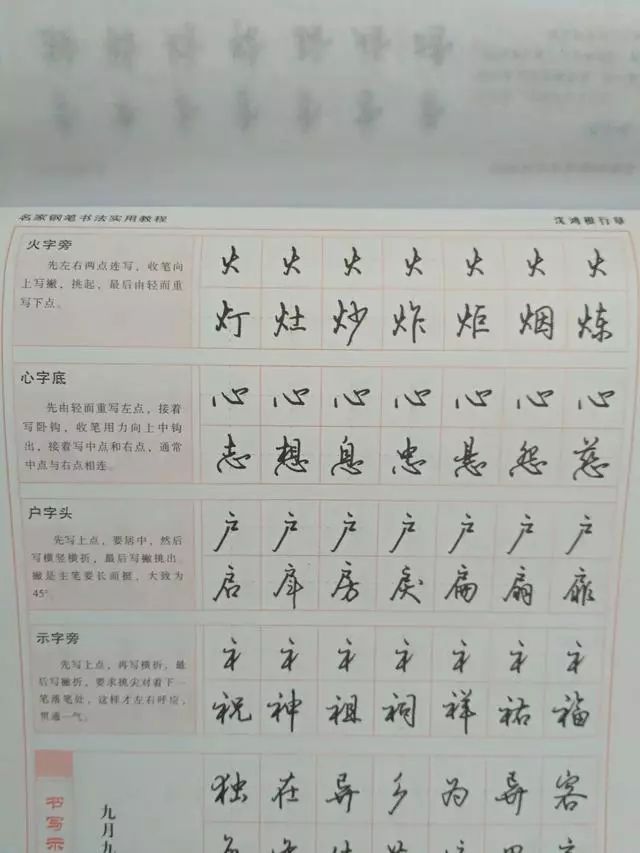 名家钢笔书法实用教程
沈鸿根行草
火字旁
先左右两点连写，收笔向
上写撇，挑起，最后由轻而重
写下点。
火 火 火 火 火 火 火
灯 灶 炒 炸 炬 烟 炼
心字底
先由轻而重写左点，接着
写卧钩，收笔用力向上中钩
出，接着写中点和右点，通常
中点与右点相连。
心 心 心 心 心 心 心
志 想 息 忠 悬 怨 慈
户字头
先写上点，要居中，然后
写横竖横折，最后写撇挑出
撇是主笔要长而挺，大致为
45°
户 户 户 户 户 户 户
启 房 戾 扁 扇 扉
示字旁
先写上点，再写横折，最
后写撇折，要求挑尖对着下一
笔落笔处，这样才左右呼应，
贯通一气。
礻 礻 礻 礻 礻 礻 礻
祝 神 祖 祠 祥 祐 福
书写示
九月九
独 在 异 乡 为 异 客